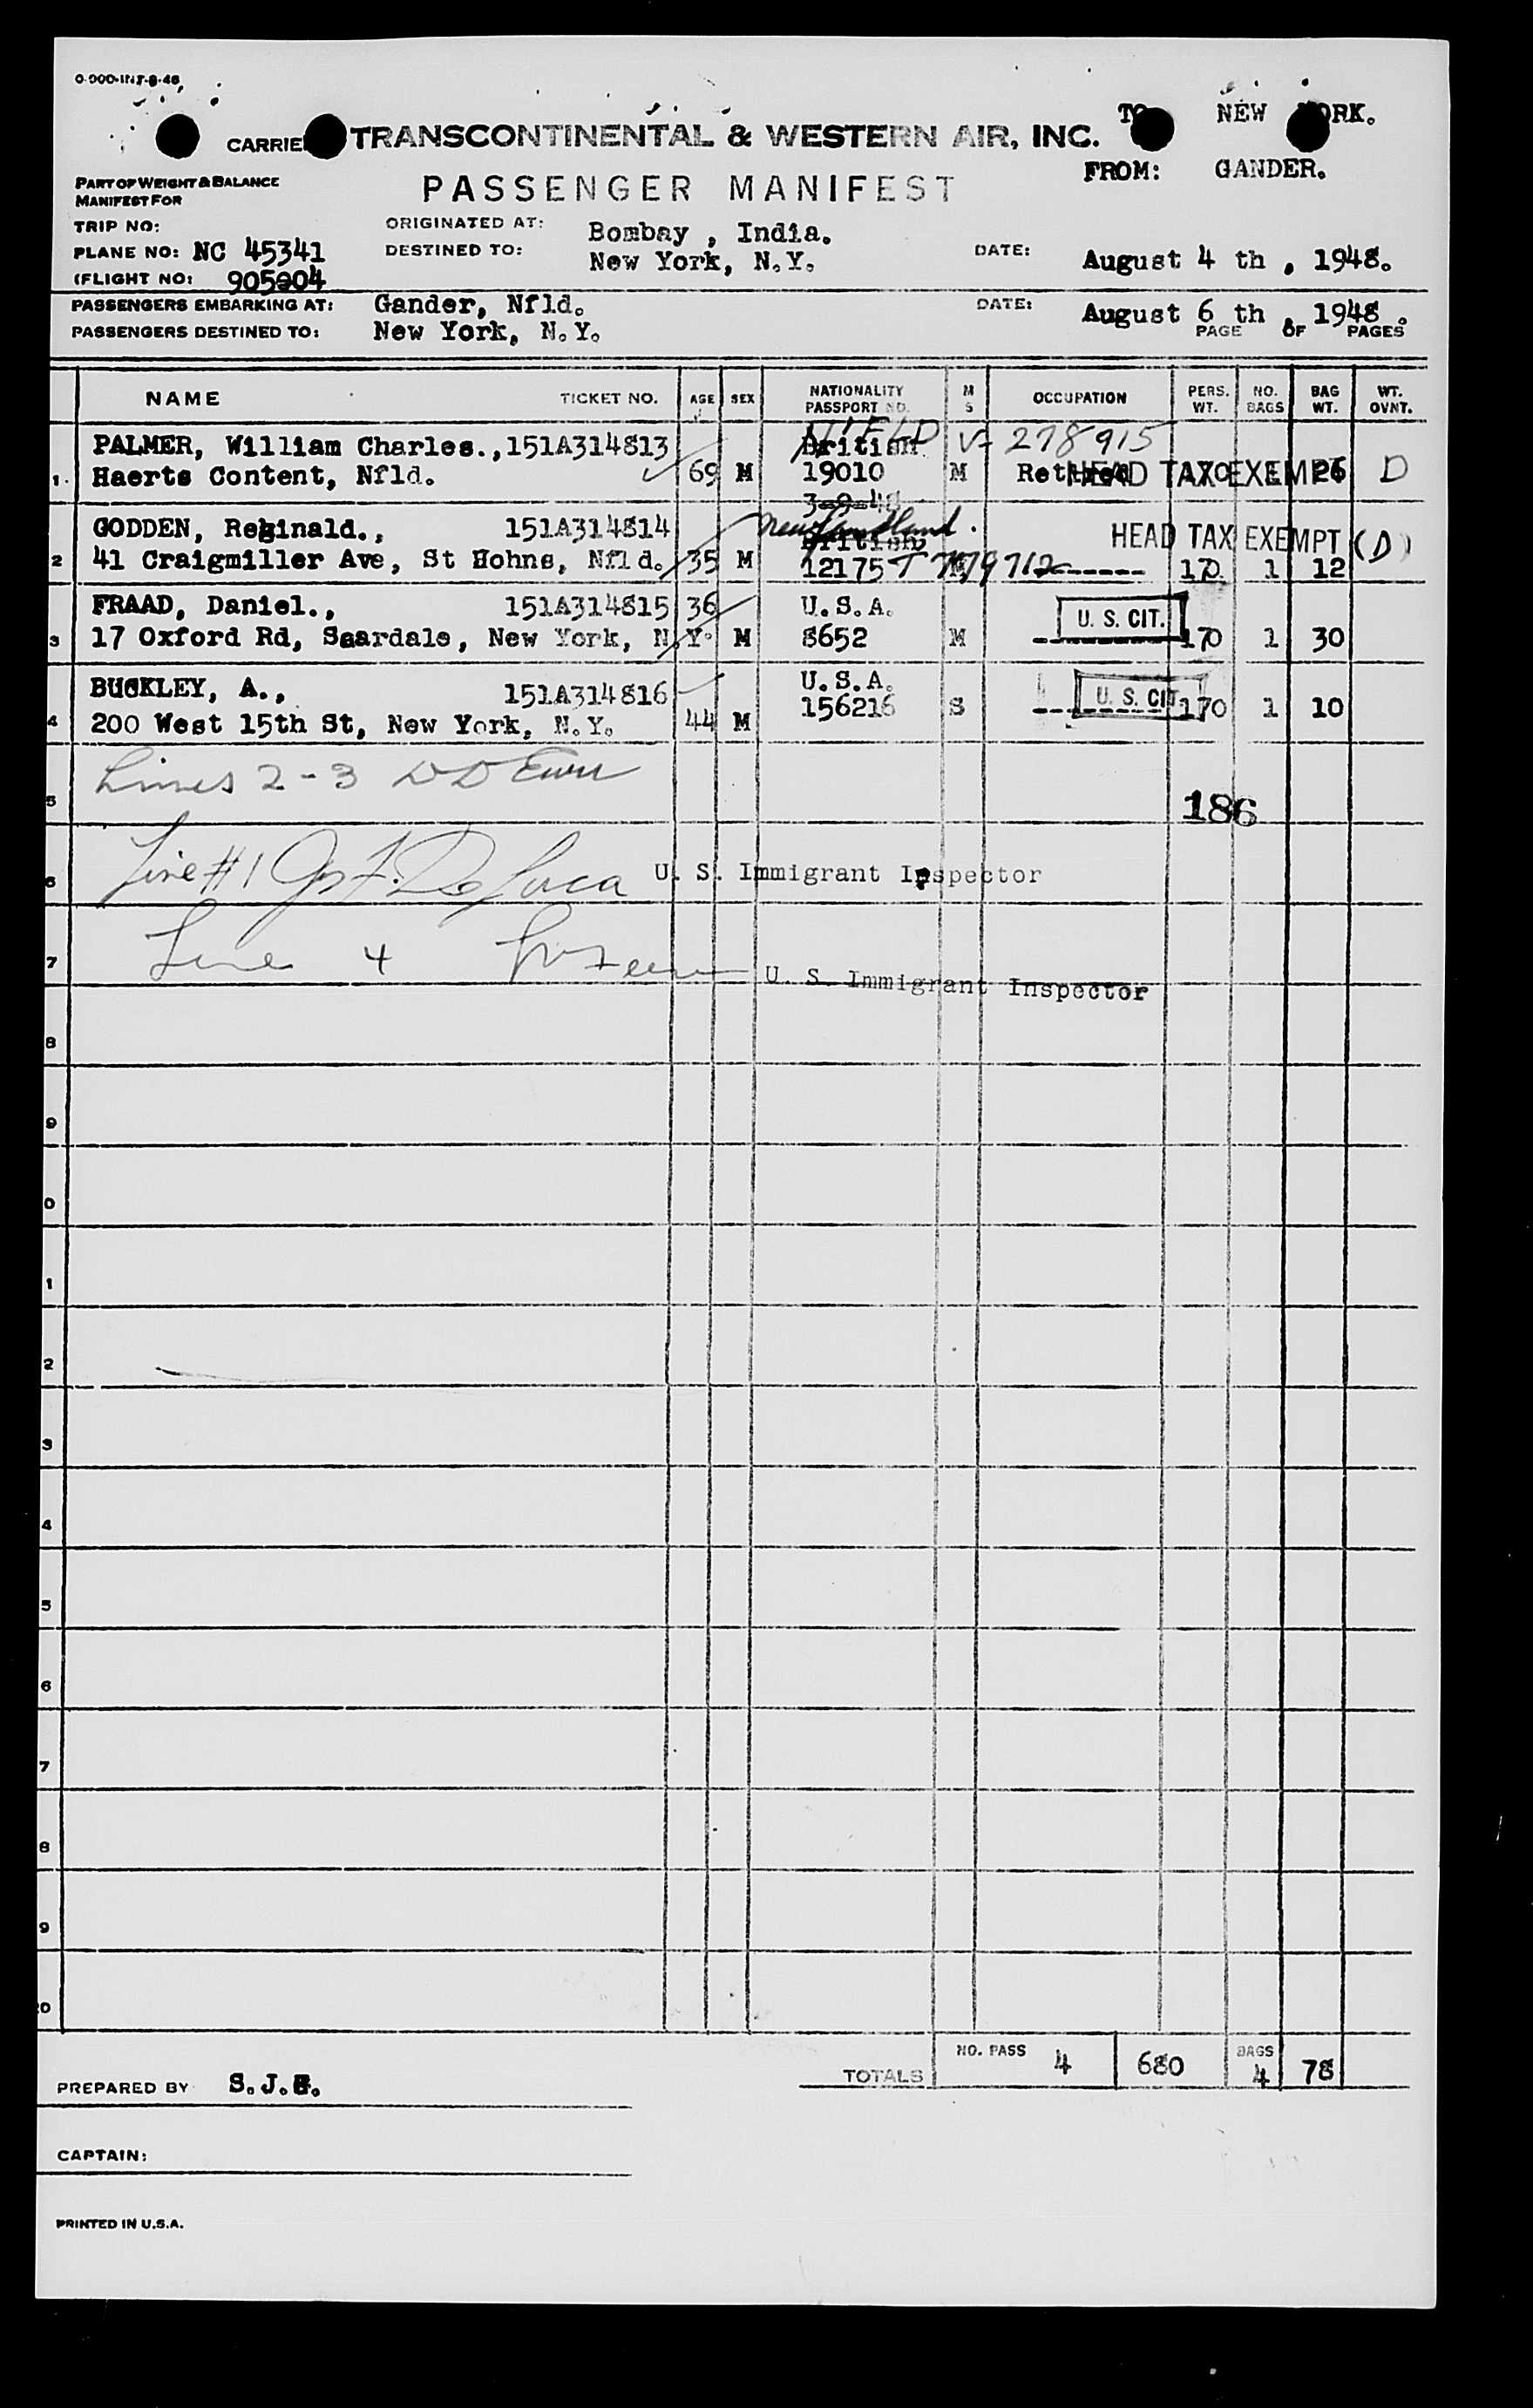 0-900-INT-8-46
TO NEW YORK.
CARRIER TRANSCONTINENTAL & WESTERN AIR, INC.
FROM: GANDER.
PART OF WEIGHT & BALANCE
MANIFEST FOR
PASSENGER MANIFEST
TRIP NO:
ORIGINATED AT: Bombay , India.
PLANE NO: NC 45341
DESTINED TO: New York, N.Y.
DATE: August 4 th , 1948.
(FLIGHT NO: 905904
PASSENGERS EMBARKING AT: Gander, Nfld.
DATE: August 6 th , 1948 .
PASSENGERS DESTINED TO: New York, N.Y.
PAGE OF PAGES
NAME TICKET NO. AGE SEX NATIONALITY PASSPORT NO. M S OCCUPATION PERS. WT. NO. BAGS BAG WT. WT. OVNT.
NFLD V- 278915
PALMER, William Charles.,151A314813 British
1. Haerts Content, Nfld. 69 M 19010 M Retired HEAD TAX EXEMPT 170 1 26 D
3-9-48
Newfoundland.
GODDEN, Reginald., 151A314814 British HEAD TAX EXEMPT (D)
2 41 Craigmiller Ave, St Hohns, Nfld. 35 M 12175 M -------- 170 1 12
FRAAD, Daniel., 151A314815 36 U.S.A. U. S. CIT.
3 17 Oxford Rd, Scardale, New York, N.Y. M 8652 M -------- 170 1 30
BUCKLEY, A., 151A314816 U.S.A. U. S. CIT
4 200 West 15th St, New York, N.Y. 44 M 156216 S -------- 170 1 10
Lines 2-3
5 186
6 Line #1 U. S. Immigrant Inspector
7 Line 4
U. S. Immigrant Inspector
8
9
0
1
2
3
4
5
6
7
8
9
0
TOTALS NO. PASS 4 680 BAGS 4 78
PREPARED BY S.J.
CAPTAIN:
PRINTED IN U.S.A.